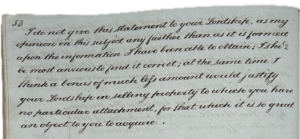 53
I do not give this statement to your Lordship, as my
opinion on this subject any farther than as it is formed
upon the information I have been able to obtain; I shd.
be most anxious to find it correct; at the same time I
think a bonus of much less amount would justify
your Lordship in selling property to which you have
no particular attachment, for that which it is so great
an object to you to acquire.